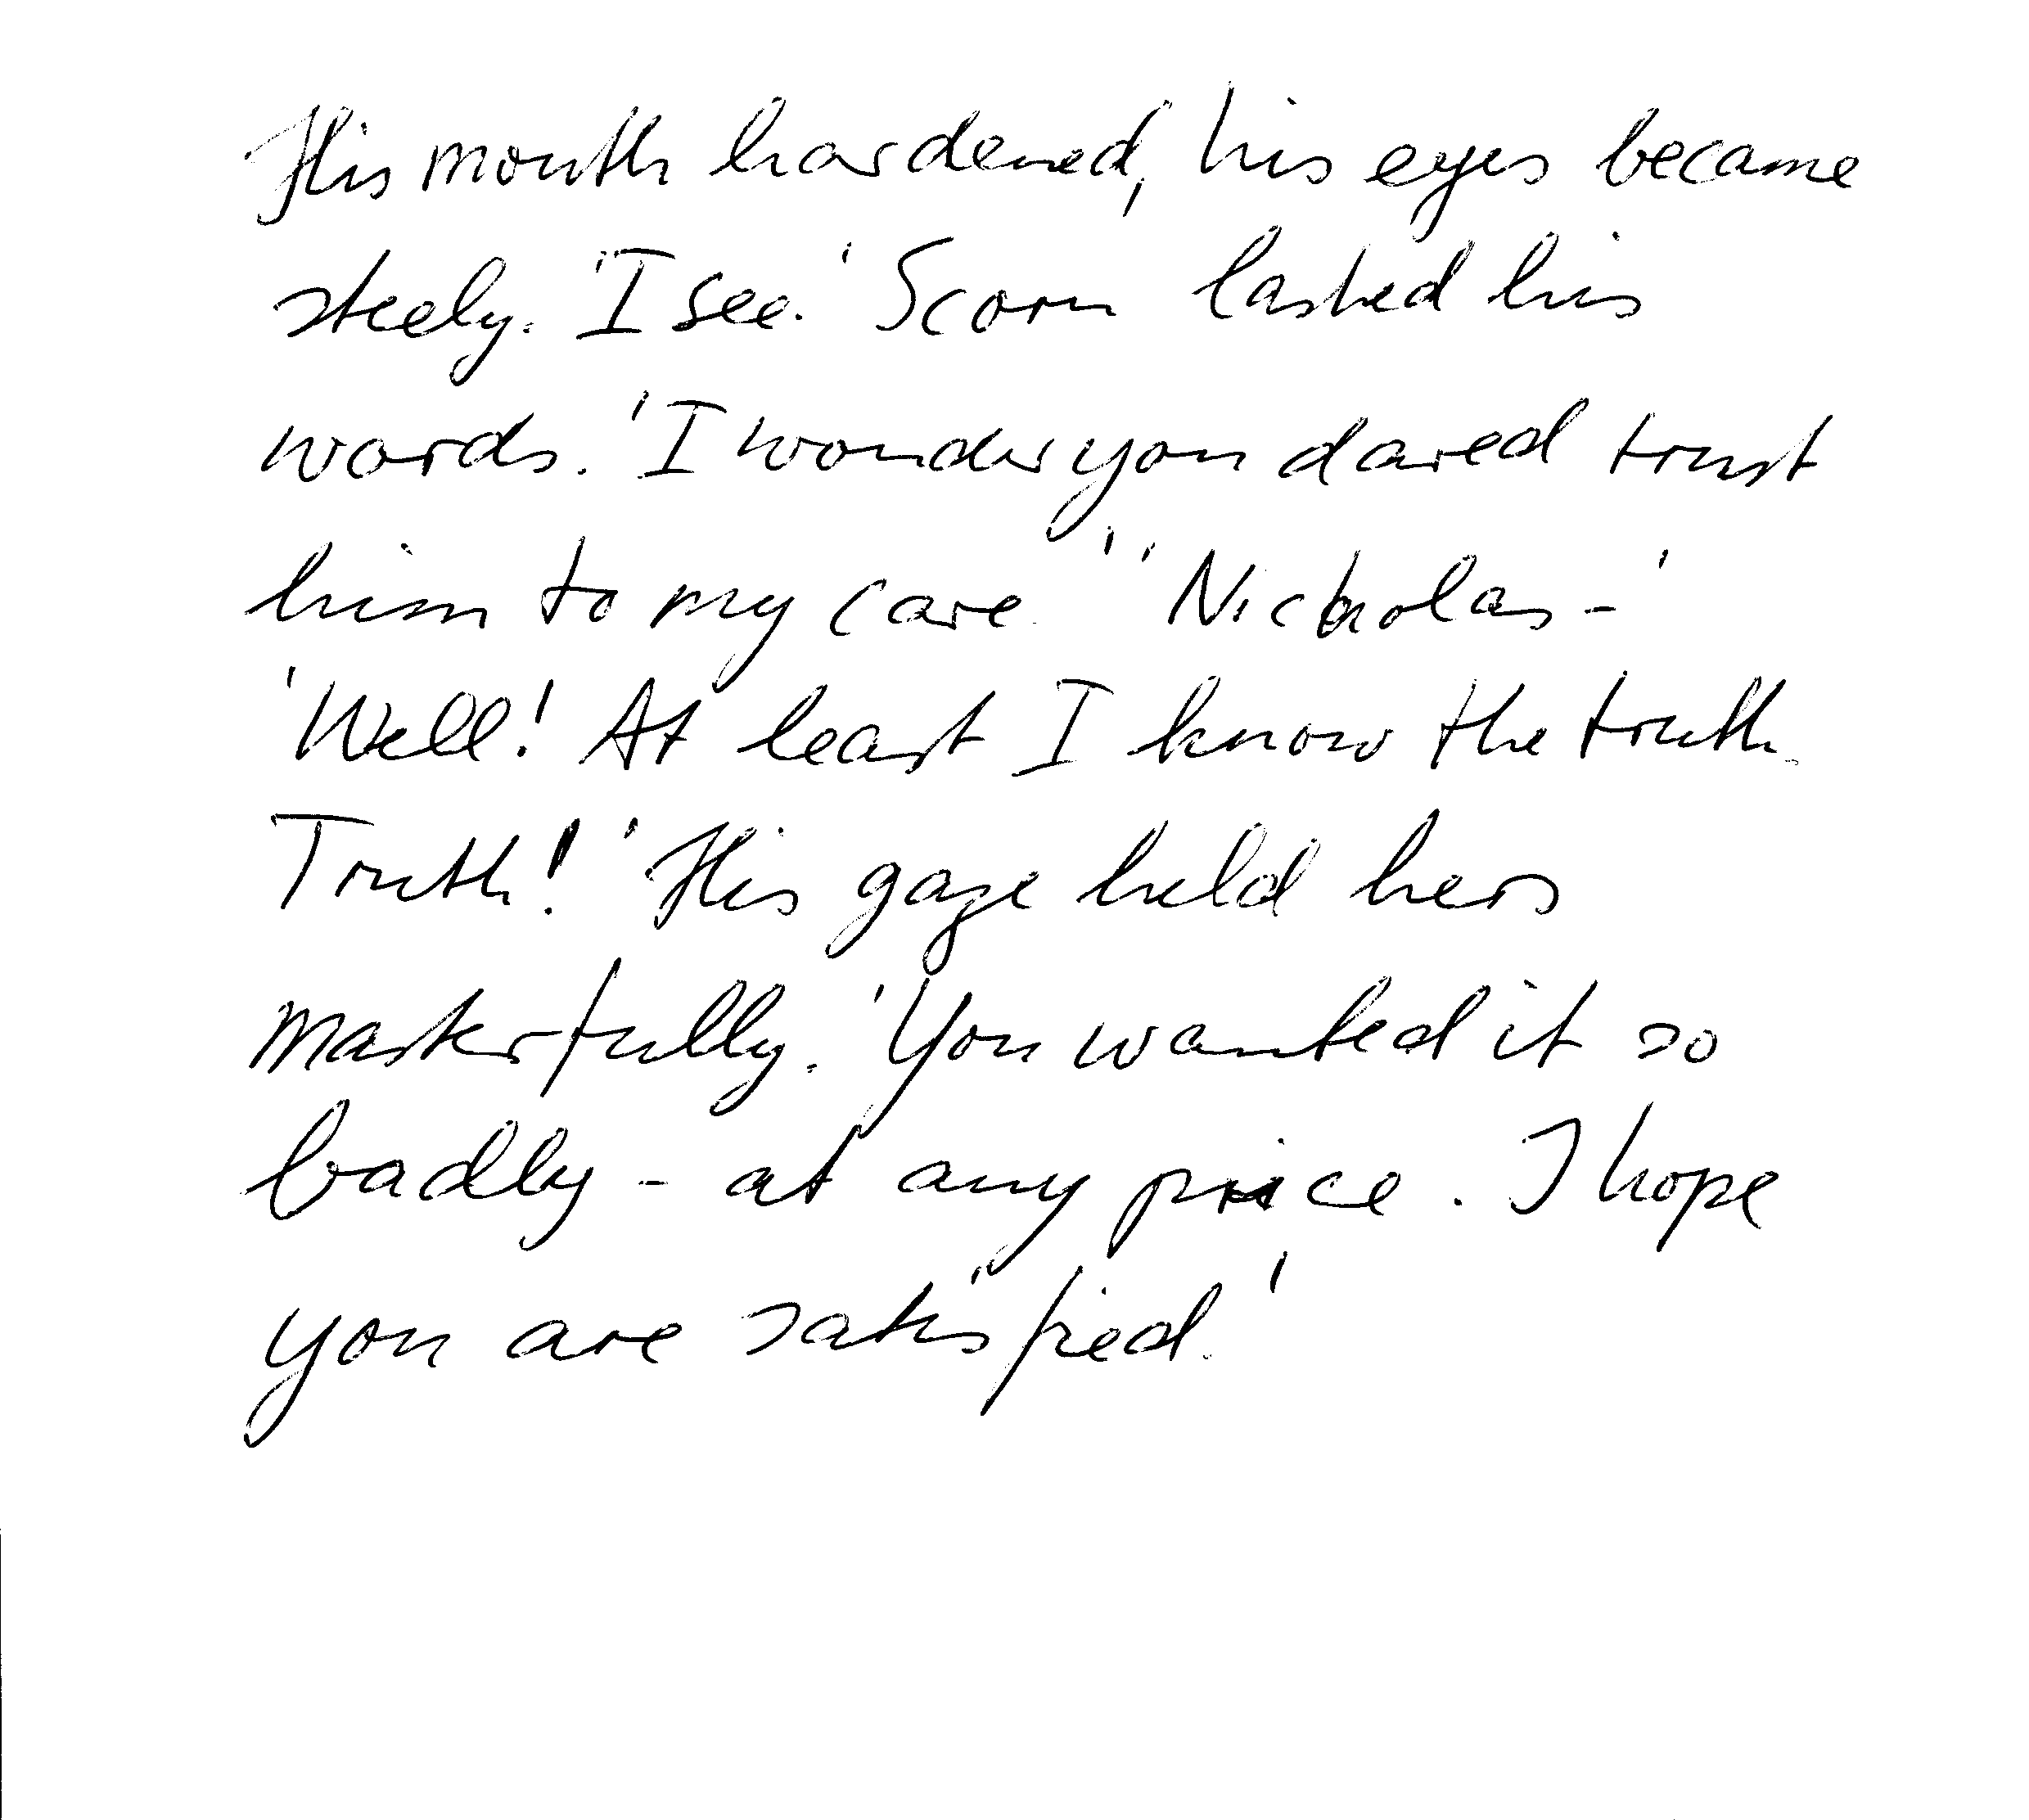 His mouth hardened, his eyes became
steely. 'I see.' Scorn lashed his
words. 'I wonder you dared trust
him to my care.' 'Nicholas-'
'Well! At least I know the truth.
Truth!' His gaze held hers
masterfully. 'You wanted it so
badly - at any price. I hope
you are satisfied.'